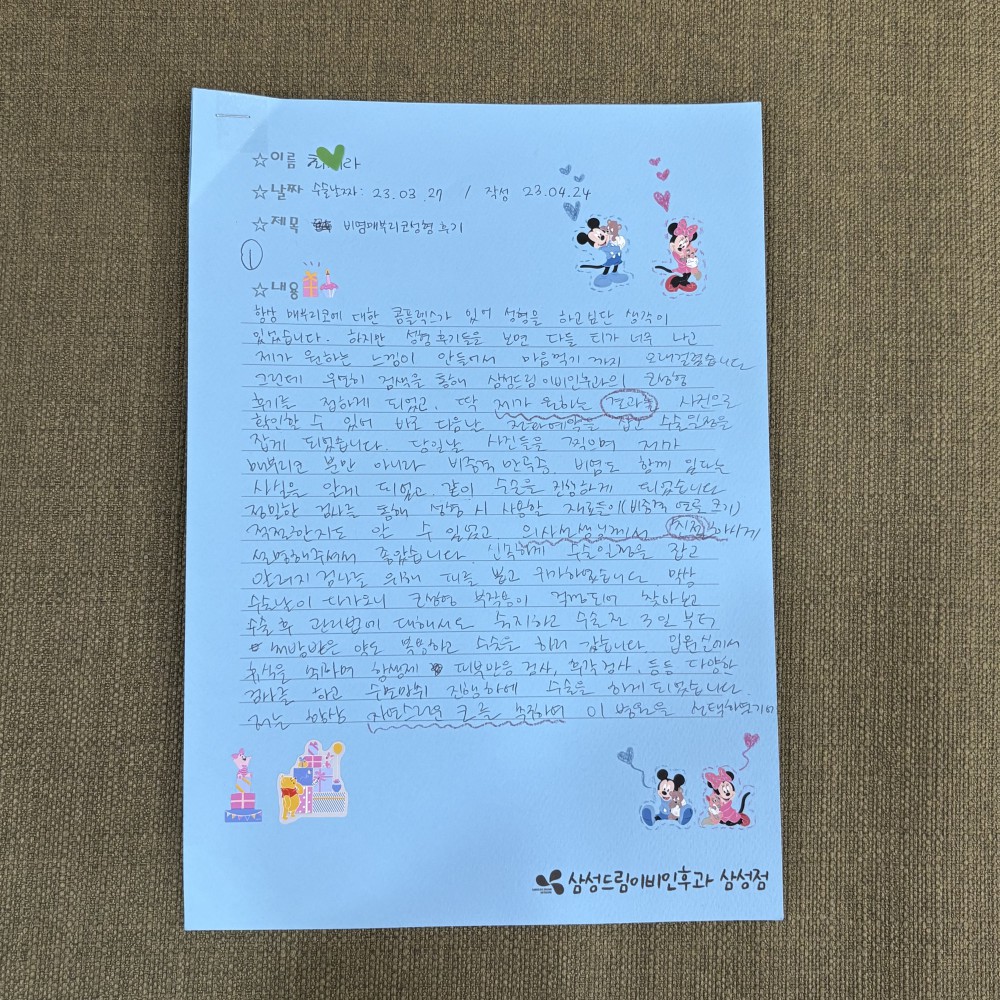 ☆이름 최 라
☆날짜 수술날짜: 23.03.27 / 작성 23.04.24
☆제목 비염매부리코성형후기
①
☆내용
항상 매부리코에 대한 콤플렉스가 있어 성형을 하고싶단 생각이
있었습니다. 하지만 성형후기들을 보면 다들 티가 너무 나고
제가 원하는 느낌이 안들어서 마음먹기까지 오래걸렸습니다
그런데 우연히 검색을 통해 삼성드림이비인후과의 코성형
후기를 접하게 되었고, 딱 제가 원하는 결과를 사진으로
확인할 수 있어 바로 다음날 전화예약을 잡고 수술일정을
잡게 되었습니다. 당일날 사진들을 찍으며 제가
매부리코 뿐만 아니라 비중격만곡증, 비염도 함께 있다는
사실을 알게 되었고, 같이 수술을 진행하게 되었습니다
정밀한 검사를 통해 성형시 사용할 재료들이(비중격 연골 크기)
적절한지도 알 수 있었고, 의사선생님께서 하시게
설명해주셔서 좋았습니다. 신속하게 수술일정을 잡고
알러지검사를 위해 피를 뽑고 귀가하였습니다 막상
수술날이 다가오니 코성형 부작용이 걱정되어 찾아보고
수술 후 관리법에 대해서도 숙지하고 수술전 3일부터
처방받은 약도 복용하고 수술을 하러 갔습니다. 입원실에서
휴식을 취하며 항생제 피부반응 검사, 후각검사, 등등 다양한
검사를 하고 수면마취 진행하에 수술을 하게되었습니다.
저는 항상 자연스러운 코를 추구하여 이 병원을 선택하였기에
삼성드림이비인후과 삼성점